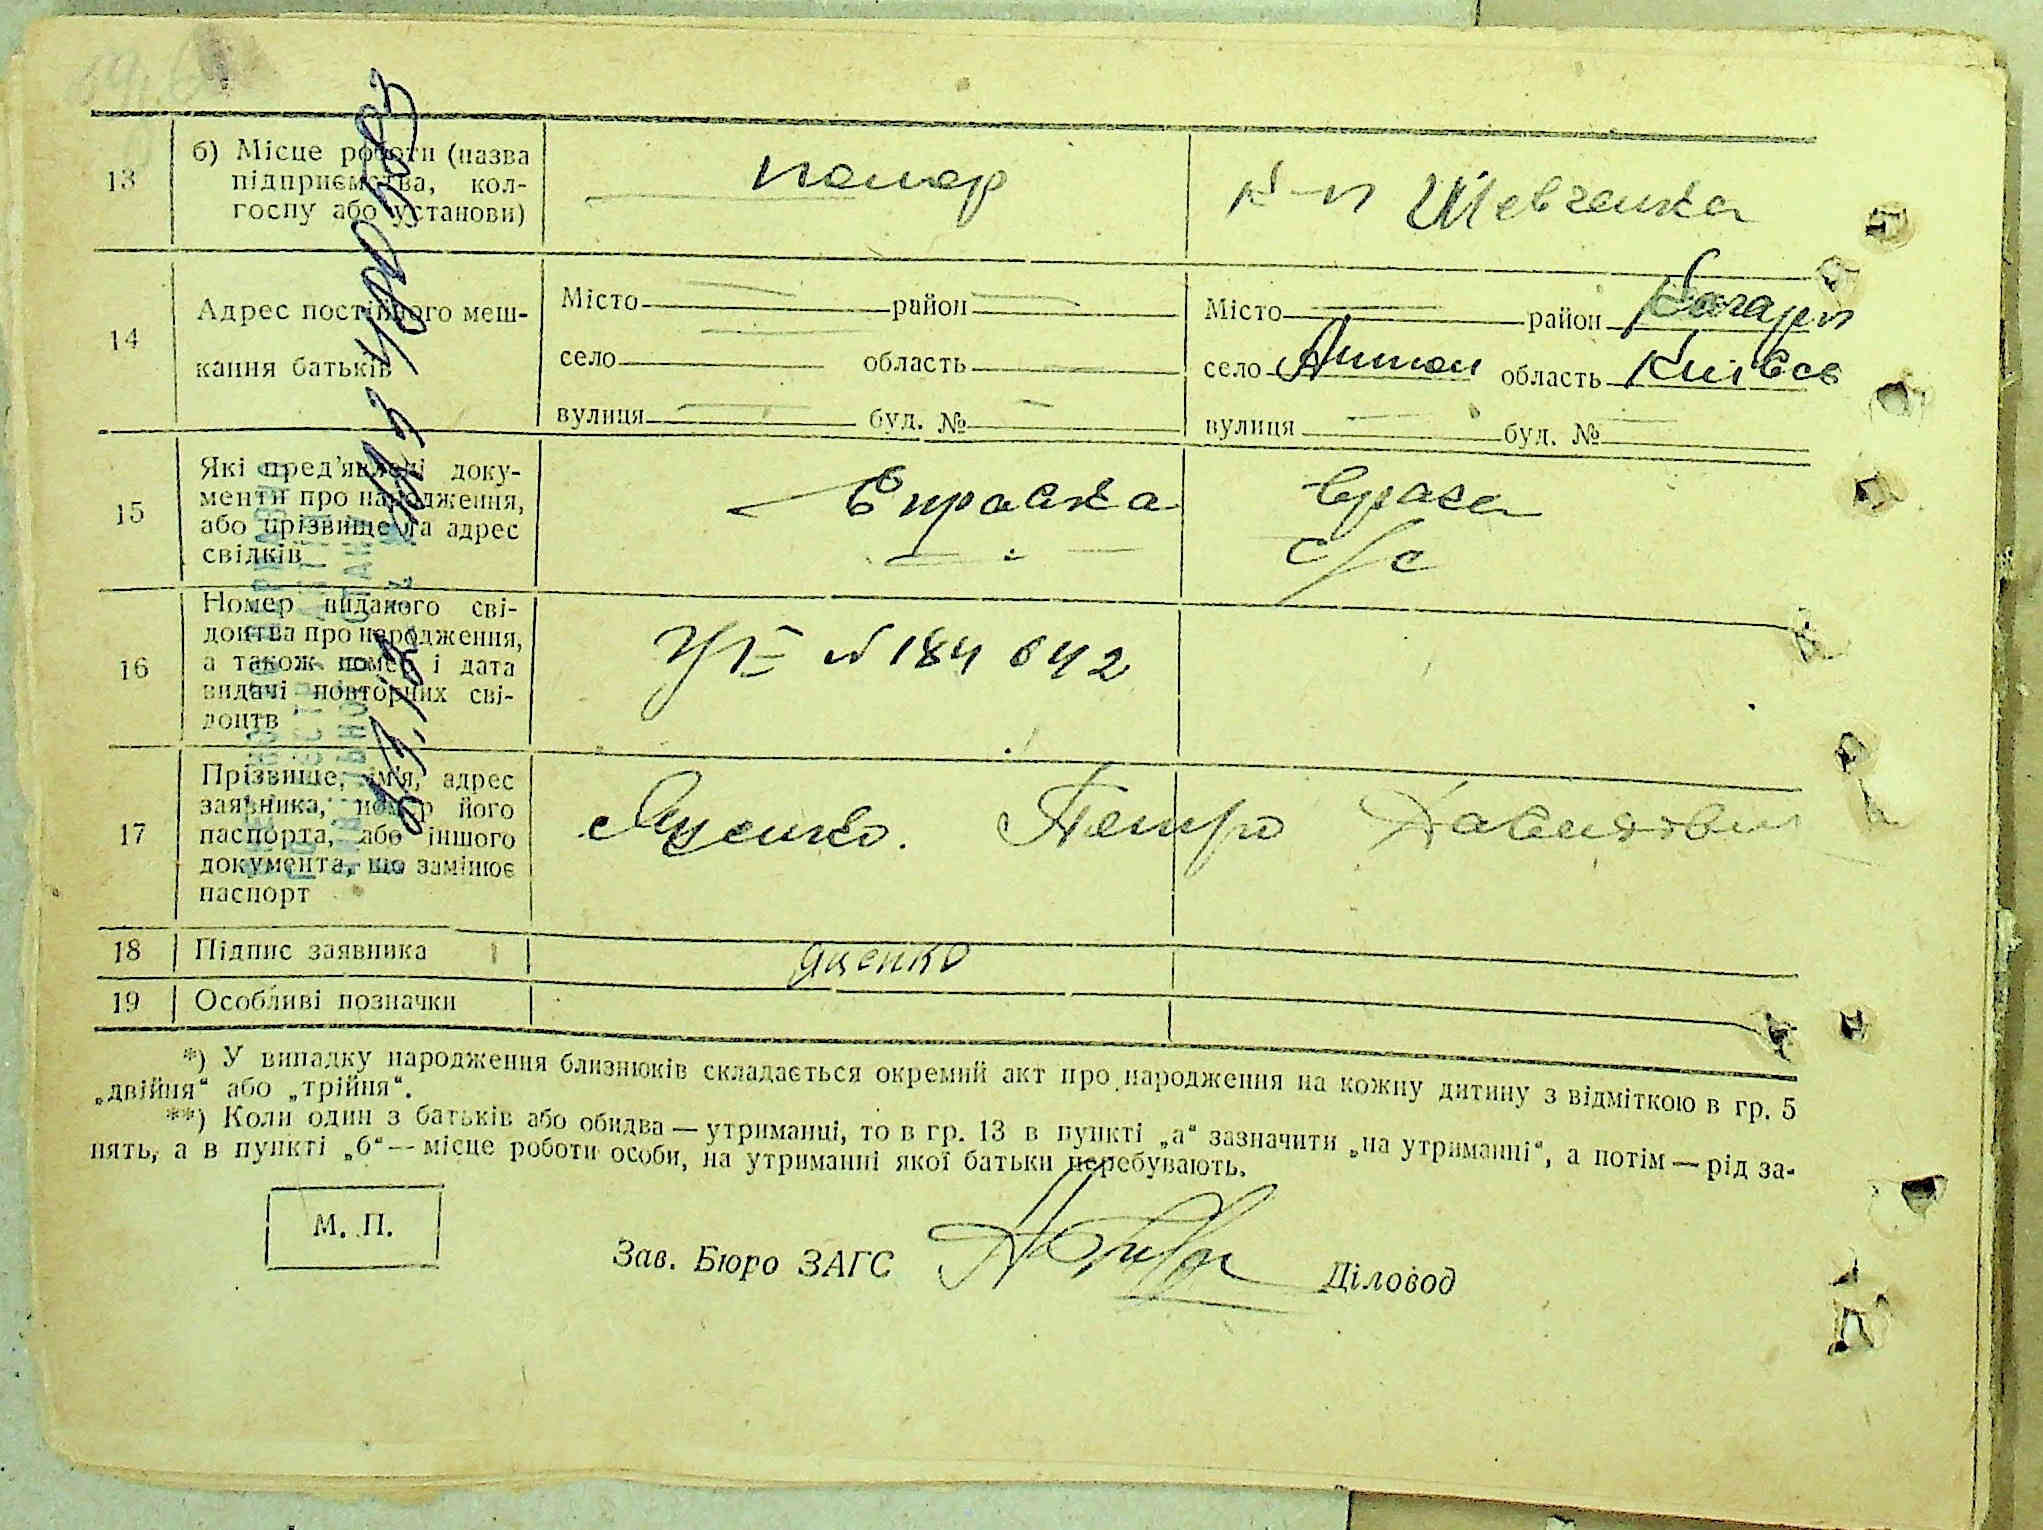 13
б) Місце роботи (назва
підприємства, кол-
госпу або установи)
помер
к-п Шевченка
14
Адрес постійного меш-
кання батьків
Місто район
село область
вулиця буд. №
Місто район
село область Київсь
вулиця буд. №
15
Які пред'явлені доку-
менти про народження,
або прізвище та адрес
свідків
Справка
с/с
16
Номер виданого сві-
доцтва про народження,
а також номер і дата
видачі повторних сві-
доцтв
№ 184642
17
Прізвище, ім'я, адрес
заявника, номер його
паспорта, або іншого
документа, що замінює
паспорт
Яценко. Петро Давидович
18
Підпис заявника
Яценко
19
Особливі позначки
*) У випадку народження близнюків складається окремий акт про народження на кожну дитину з відміткою в гр. 5
„двійня“ або „трійня“.
**) Коли один з батьків або обидва — утриманці, то в гр. 13 в пункті „а“ зазначити „на утриманні“, а потім — рід за-
нять, а в пункті „б“ — місце роботи особи, на утриманні якої батьки перебувають.
М. П.
Зав. Бюро ЗАГС
Діловод